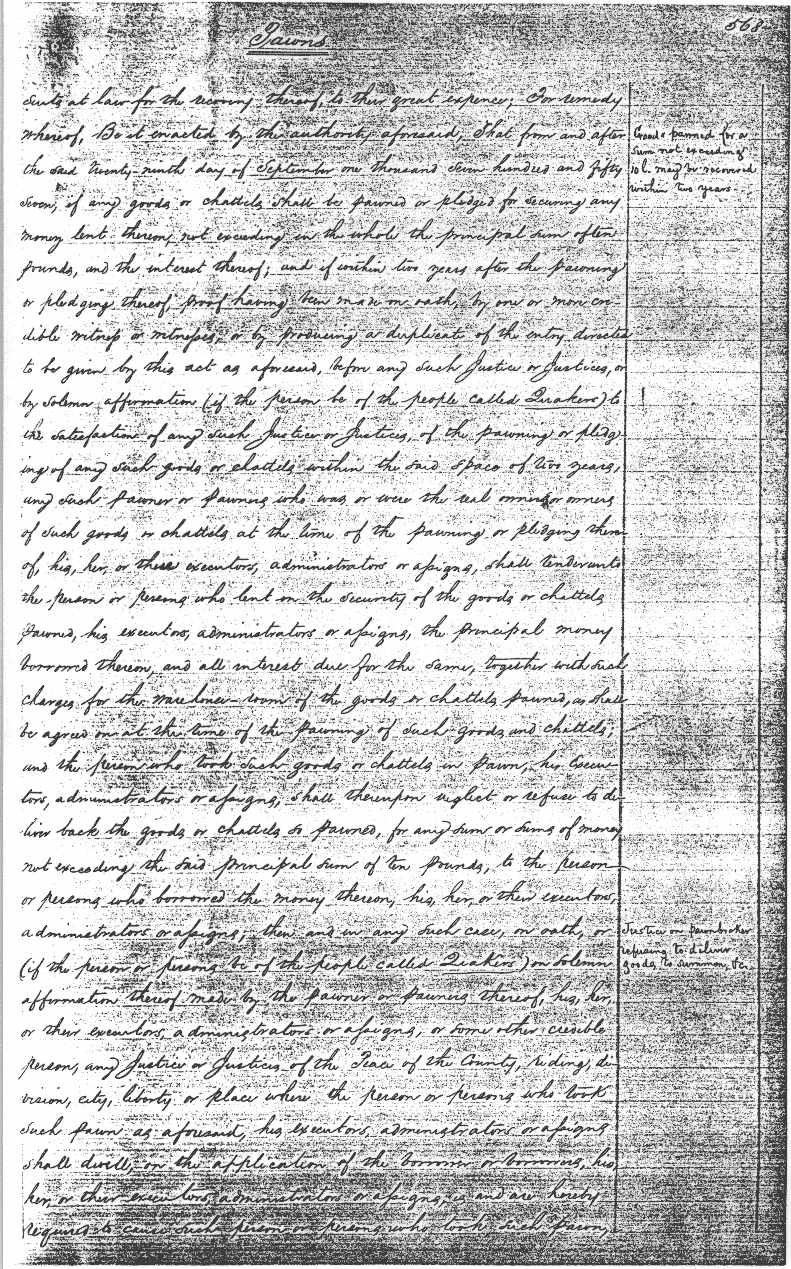 568
Pawns.
suits at law for the recovery thereof, to their great expence; For remedy
whereof, Be it enacted by the authority aforesaid, That from and after
the said twenty-ninth day of September one thousand seven hundred and fifty
seven, if any goods or chattels shall be pawned or pledged for securing any
money lent thereon, not exceeding in the whole the principal sum of ten
pounds, and the interest thereof; and if within two years after the pawning
or pledging thereof, proof having been made on oath, by one or more cre-
dible witness or witnesses, or by producing a duplicate of the entry directed
to be given by this act as aforesaid, before any such Justice or Justices, or
by solemn affirmation (if the person be of the people called Quakers) to
the satisfaction of any such Justice or Justices, of the pawning or pledg-
ing of any such goods or chattels within the said space of two years,
any such pawner or pawners who was or were the real owner or owners
of such goods or chattels at the time of the pawning or pledging there-
of, his, her, or their executors, administrators or assigns, shall tender unto
the person or persons who lent on the security of the goods or chattels
pawned, his executors, administrators or assigns, the principal money
borrowed thereon, and all interest due for the same, together with such
charges for the warehouse-room of the goods or chattels pawned, as shall
be agreed on at the time of the pawning of such goods and chattels;
and the person who took such goods or chattels in pawn, his Execu-
tors, administrators or assigns, shall thereupon neglect or refuse to de-
liver back the goods or chattels so pawned, for any sum or sums of money
not exceeding the said principal sum of ten pounds, to the person
or persons who borrowed the money thereon, his, her, or their executors,
administrators or assigns; then and in any such case, on oath, or
(if the person or persons be of the people called Quakers) on solemn
affirmation thereof made by the pawner or pawners thereof, his, her,
or their executors, administrators or assigns, or some other credible
person, any Justice or Justices of the Peace of the County, riding, di-
vision, city, liberty or place where the person or persons who took
such pawn as aforesaid, his executors, administrators or assigns
shall dwell, on the application of the borrower or borrowers, his,
her, or their executors, administrators or assigns, is and are hereby
required to cause such person or persons who took such pawn,
Goods pawned for a
sum not exceeding
10 l. may be recovered
within two years
Justice on pawnbroker
refusing to deliver
goods to summon, &c.